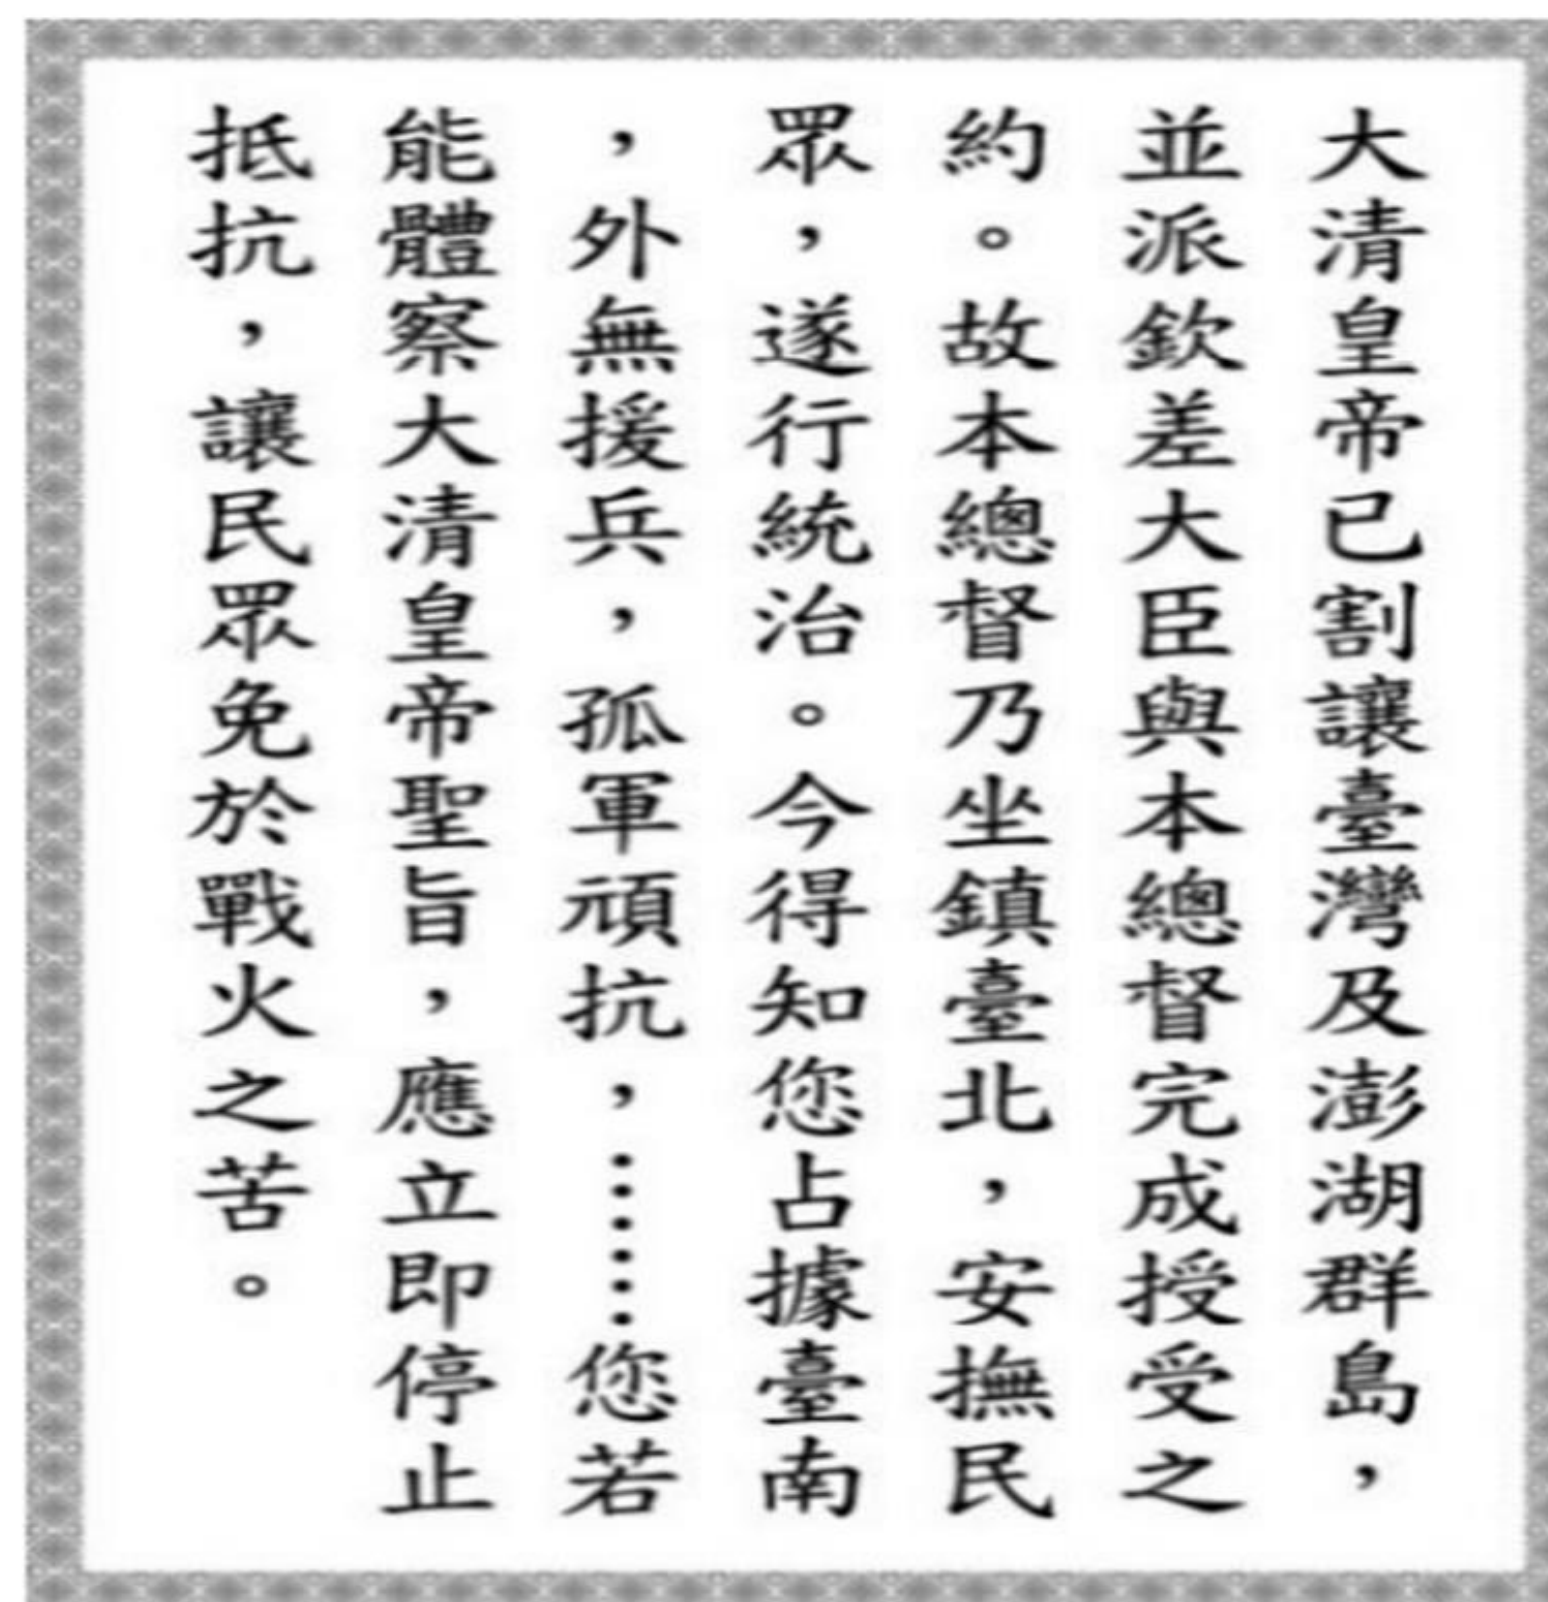 大清皇帝已割讓臺灣及澎湖群島，
並派欽差大臣與本總督完成授受之
約。故本總督乃坐鎮臺北，安撫民
眾，遂行統治。今得知您占據臺南
，外無援兵，孤軍頑抗，……您若
能體察大清皇帝聖旨，應立即停止
抵抗，讓民眾免於戰火之苦。